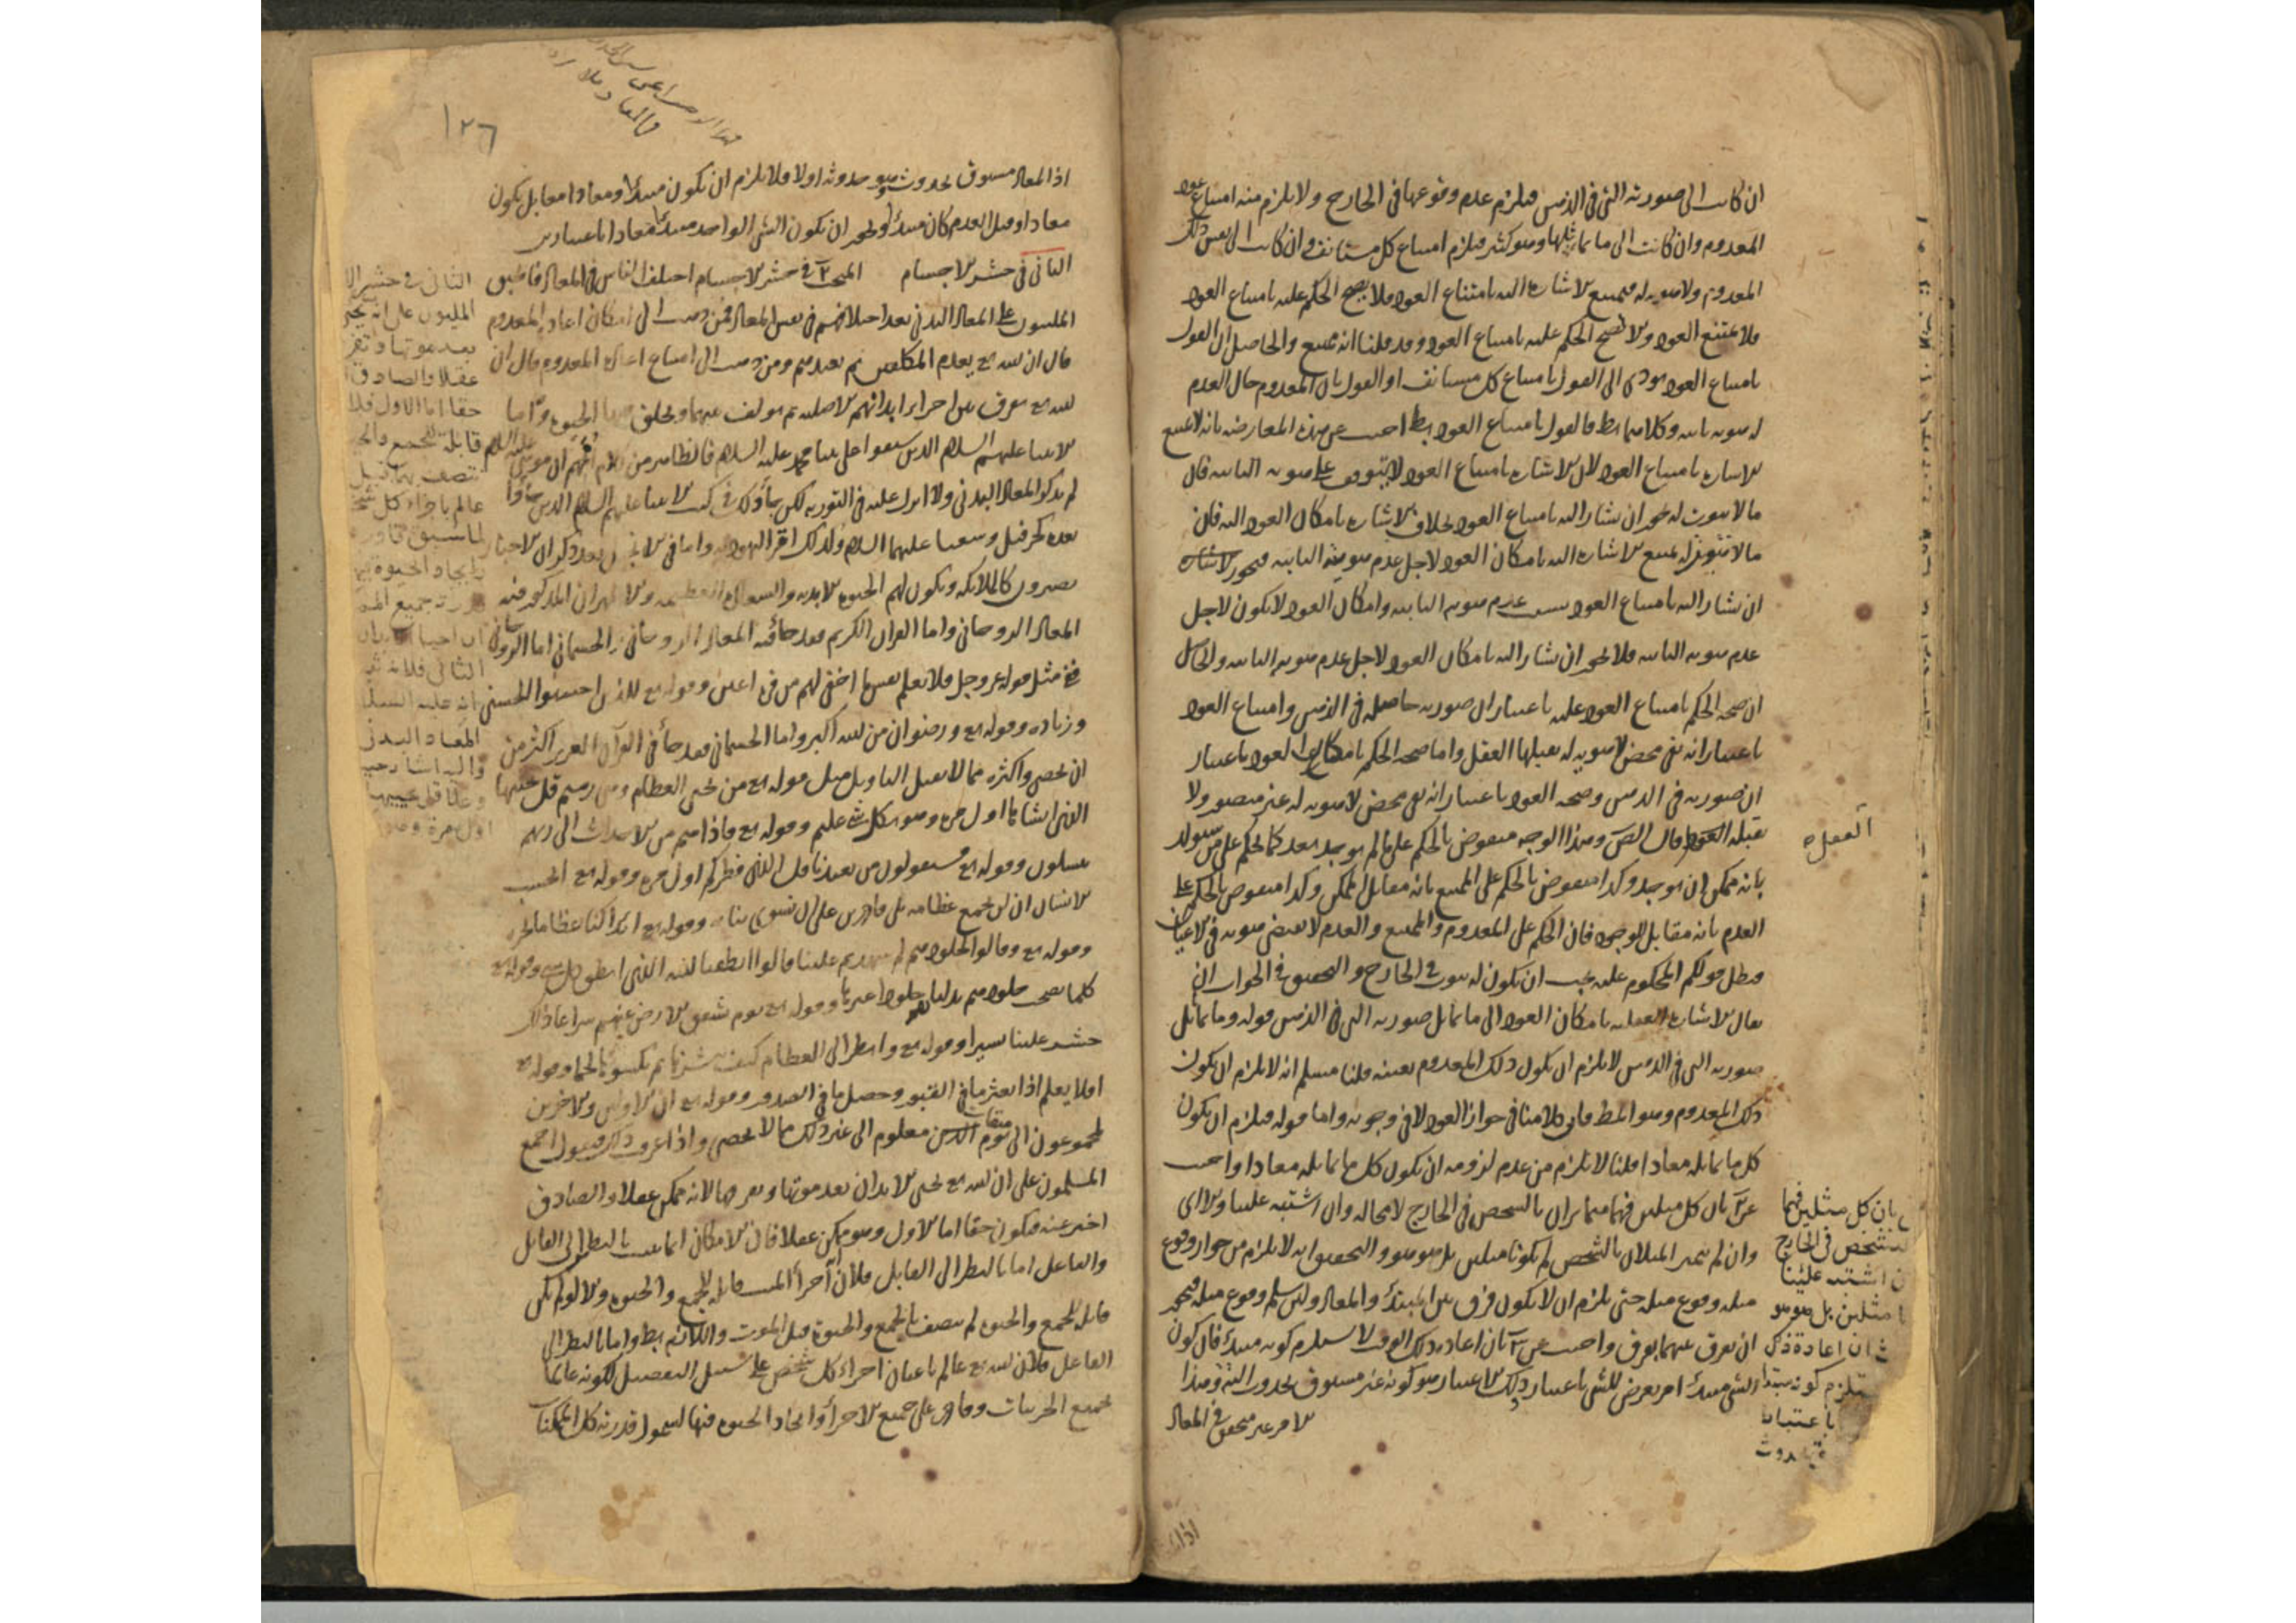 ان كانت الى صورته التى فى الذهن فيلزم عدم وقوعها فى الخارج ولا يلزم منه امتناع عود
المعدوم وان كانت الى ما يماثلها وهو كثير فيلزم امتناع كل مستأنف وان كانت الى نفس ذلك
المعدوم ولا هوية له فيمتنع الاشارة اليه بامتناع العود فلا يصح الحكم عليه بامتناع العود
فلا يمتنع العود ولا يصح الحكم عليه بامتناع العود وقد قلنا انه ممتنع والحاصل ان القول
بامتناع العود مودى الى القول بامتناع كل مستانف او القول بان المعدوم حال العدم
له هوية ثابتة وكلاهما بط فالقول بامتناع العود بط اجيب عن هذه المعارضة بانه لا يمتنع
الاشارة بامتناع العود لان الاشارة بامتناع العود لا يتوقف على هويته الثابتة فان
ما لا ثبوت له يجوز ان يشار اليه بامتناع العود بخلاف الاشارة بامكان العود اليه فان
ما لا ثبوت له يمتنع الاشارة اليه بامكان العود لاجل عدم هويته الثابتة فيجوز
ان يشار اليه بامتناع العود بسبب عدم هويته الثابتة وامكان العود لا يكون لاجل
عدم هويته الثابتة فلا يجوز ان يشار اليه بامكان العود لاجل عدم هويته الثابتة والحاصل
ان صحة الحكم بامتناع العود عليه باعتبار ان صورته حاصلة فى الذهن وامتناع العود
باعتبار انه نفى محض لا هوية له يقبلها العقل واما صحة الحكم بامكان العود باعتبار
ان صورته فى الذهن وصحة العود باعتبار انه نفى محض لا هوية له غير متصور ولا
يقبله العقل قال المص وهذا الوجه منقوض بالحكم على ما لم يوجد بعد كالحكم على من سيولد
العقل
بانه ممكن ان يوجد وكذا منقوض بالحكم على الممتنع بانه مقابل الممكن وكذا منقوض بالحكم على
العدم بانه مقابل للوجود فان الحكم على المعدوم والممتنع والعدم لا يقتضى هويته فى الاعيان
فبطل قولكم المحكوم عليه يجب ان يكون له ثبوت فى الخارج والتحقيق فى الجواب ان
يقال الاشارة العقلية بامكان العود الى ما يماثل صورته التى فى الذهن قوله وما يماثل
صورته التى فى الذهن لا يلزم ان يكون ذلك المعدوم بعينه قلنا مسلم انه لا يلزم ان يكون
ذلك المعدوم وهو المط فان كلامنا فى جواز العود لا فى وجوبه واما قوله فيلزم ان يكون
كل ما يماثله معادا قلنا لا يلزم من عدم لزومه ان يكون كل ما يماثله معادا واجيب
عن ٢ بان كل مثلين فهما متمايزان بالشخص فى الخارج لا محالة وان اشتبه علينا ولا اى
وان لم يتميز المثلان بالتشخص لم يكونا مثلين بل هو هو والتحقيق انه لا يلزم من جواز وقوع
مثله وقوع مثله حتى يلزم ان لا يكون فرق بين المبتدأ والمعاد ولئن سلم وقوع مثله فيجوز
ان يفرق بينهما بفرق واجيب عن ٣ بان اعادة ذلك الوقت لا يستلزم كونه مبتدأ فان كون
الشى مبتدأ امر يعرض للشى باعتبار وذلك الاعتبار هو كونه غير مسبوق بحدوث البتة وهذا
الامر غير متحقق فى المعاد
بان كل مثلين فهما
بتشخص فى الخارج
اشتبه علينا
مثلين بل هو هو
ان اعادة ذلك
كونه مبتدا
باعتبار
اذا
١٢٦
اذ المعاد مسبوق بحدوث هو حدوثه اولا فلا يلزم ان يكون مبتدأ ومعادا معا بل يكون
معادا وقبل العدم كان مبتدأ ويجوز ان يكون الشى الواحد مبتدأ معادا باعتبارين
الثانى فى حشر الاجسام المبحث ٢ فى حشر الاجسام اختلف الناس فى المعاد فاطبق
المليون على المعاد البدنى بعد اختلافهم فى نفس المعاد فمن ذهب الى امكان اعادة المعدوم
قال ان الله تع يعدم المكلفين ثم يعيدهم ومن ذهب الى امتناع اعادة المعدوم قال ان
الله تع يفرق بين اجزاء ابدانهم الاصلية ثم يؤلف بينها ويخلق فيها الحيوة واما
الانبياء عليهم السلام الذين سبقوا على نبينا محمد عليه السلام فالظاهر من كلام اممهم ان موسى عليه السلام
لم يذكر المعاد البدنى ولا انزل عليه فى التورية لكن جاء ذلك فى كتب الانبياء عليهم السلام الذين جاؤا
بعده كحزقيل وشعيا عليهما السلام ولذلك اقر اليهود به واما فى الانجيل فقد ذكر ان الاخيار
يصيرون كالملائكة ويكون لهم الحيوة الابدية والسعادة العظيمة والاظهر ان المذكور فيه
المعاد الروحانى واما القران الكريم فقد جاء فيه المعاد الروحانى والجسمانى اما الروحانى
ففى مثل قوله عز وجل فلا تعلم نفس ما اخفى لهم من قرة اعين وقوله تع للذين احسنوا الحسنى
وزيادة وقوله تع ورضوان من الله اكبر واما الجسمانى فقد جاء فى القرآن العزيز اكثر من
ان يحصى واكثره مما لا يقبل التاويل مثل قوله تع من يحيى العظام وهى رميم قل يحييها
الذى انشاها اول مرة وهو بكل خلق عليم وقوله تع فاذا هم من الاجداث الى ربهم
ينسلون وقوله تع فسيقولون من يعيدنا قل الذى فطركم اول مرة وقوله تع ايحسب
الانسان ان لن نجمع عظامه بلى قادرين على ان نسوى بنانه وقوله تع ائذا كنا عظاما نخرة
وقوله تع وقالوا لجلودهم لم شهدتم علينا قالوا انطقنا الله الذى انطق كل شىء وقوله تع
كلما نضجت جلودهم بدلناهم جلودا غيرها وقوله تع يوم تشقق الارض عنهم سراعا ذلك
حشر علينا يسير وقوله تع وانظر الى العظام كيف ننشزها ثم نكسوها لحما وقوله تع
افلا يعلم اذا بعثر ما فى القبور وحصل ما فى الصدور وقوله تع ان الاولين والاخرين
لمجموعون الى ميقات يوم معلوم الى غير ذلك مما لا يحصى واذا عرفت ذلك فنقول اجمع
المسلمون على ان الله تع يحيى الابدان بعد موتها وتفرقها لانه ممكن عقلا والصادق
اخبر عنه فيكون حقا اما الاول وهو انه ممكن عقلا فان الامكان انما يثبت بالنظر الى القابل
والفاعل اما بالنظر الى القابل فلان اجزاء الميت قابلة للجمع والحيوة والا لو لم يكن
قابلا للجمع والحيوة لم يتصف بالجمع والحيوة قبل الموت واللازم بط واما بالنظر الى
الفاعل فلان الله تع عالم باعيان اجزاء كل شخص على سبيل التفصيل لكونه عالما
بجميع الجزئيات وقادر على جميع الاجزاء وايجاد الحيوة فيها لشمول قدرته كل الممكنات
الثانى فى حشر الا
المليون على انه يحيى
بعد موتها وتفر
عقلا والصادق
حقا اما الاول فلا
قابلة للجمع والح
تتصف بهما قبل
عالم باجزاء كل شخ
لما سبق وقادر
وايجاد الحيوة فيها
الثانى فلانه ثبت
انه عليه السلام
المعاد البدنى
واليه اشار حيث
وعلا قل يحييها
اول مرة وهو